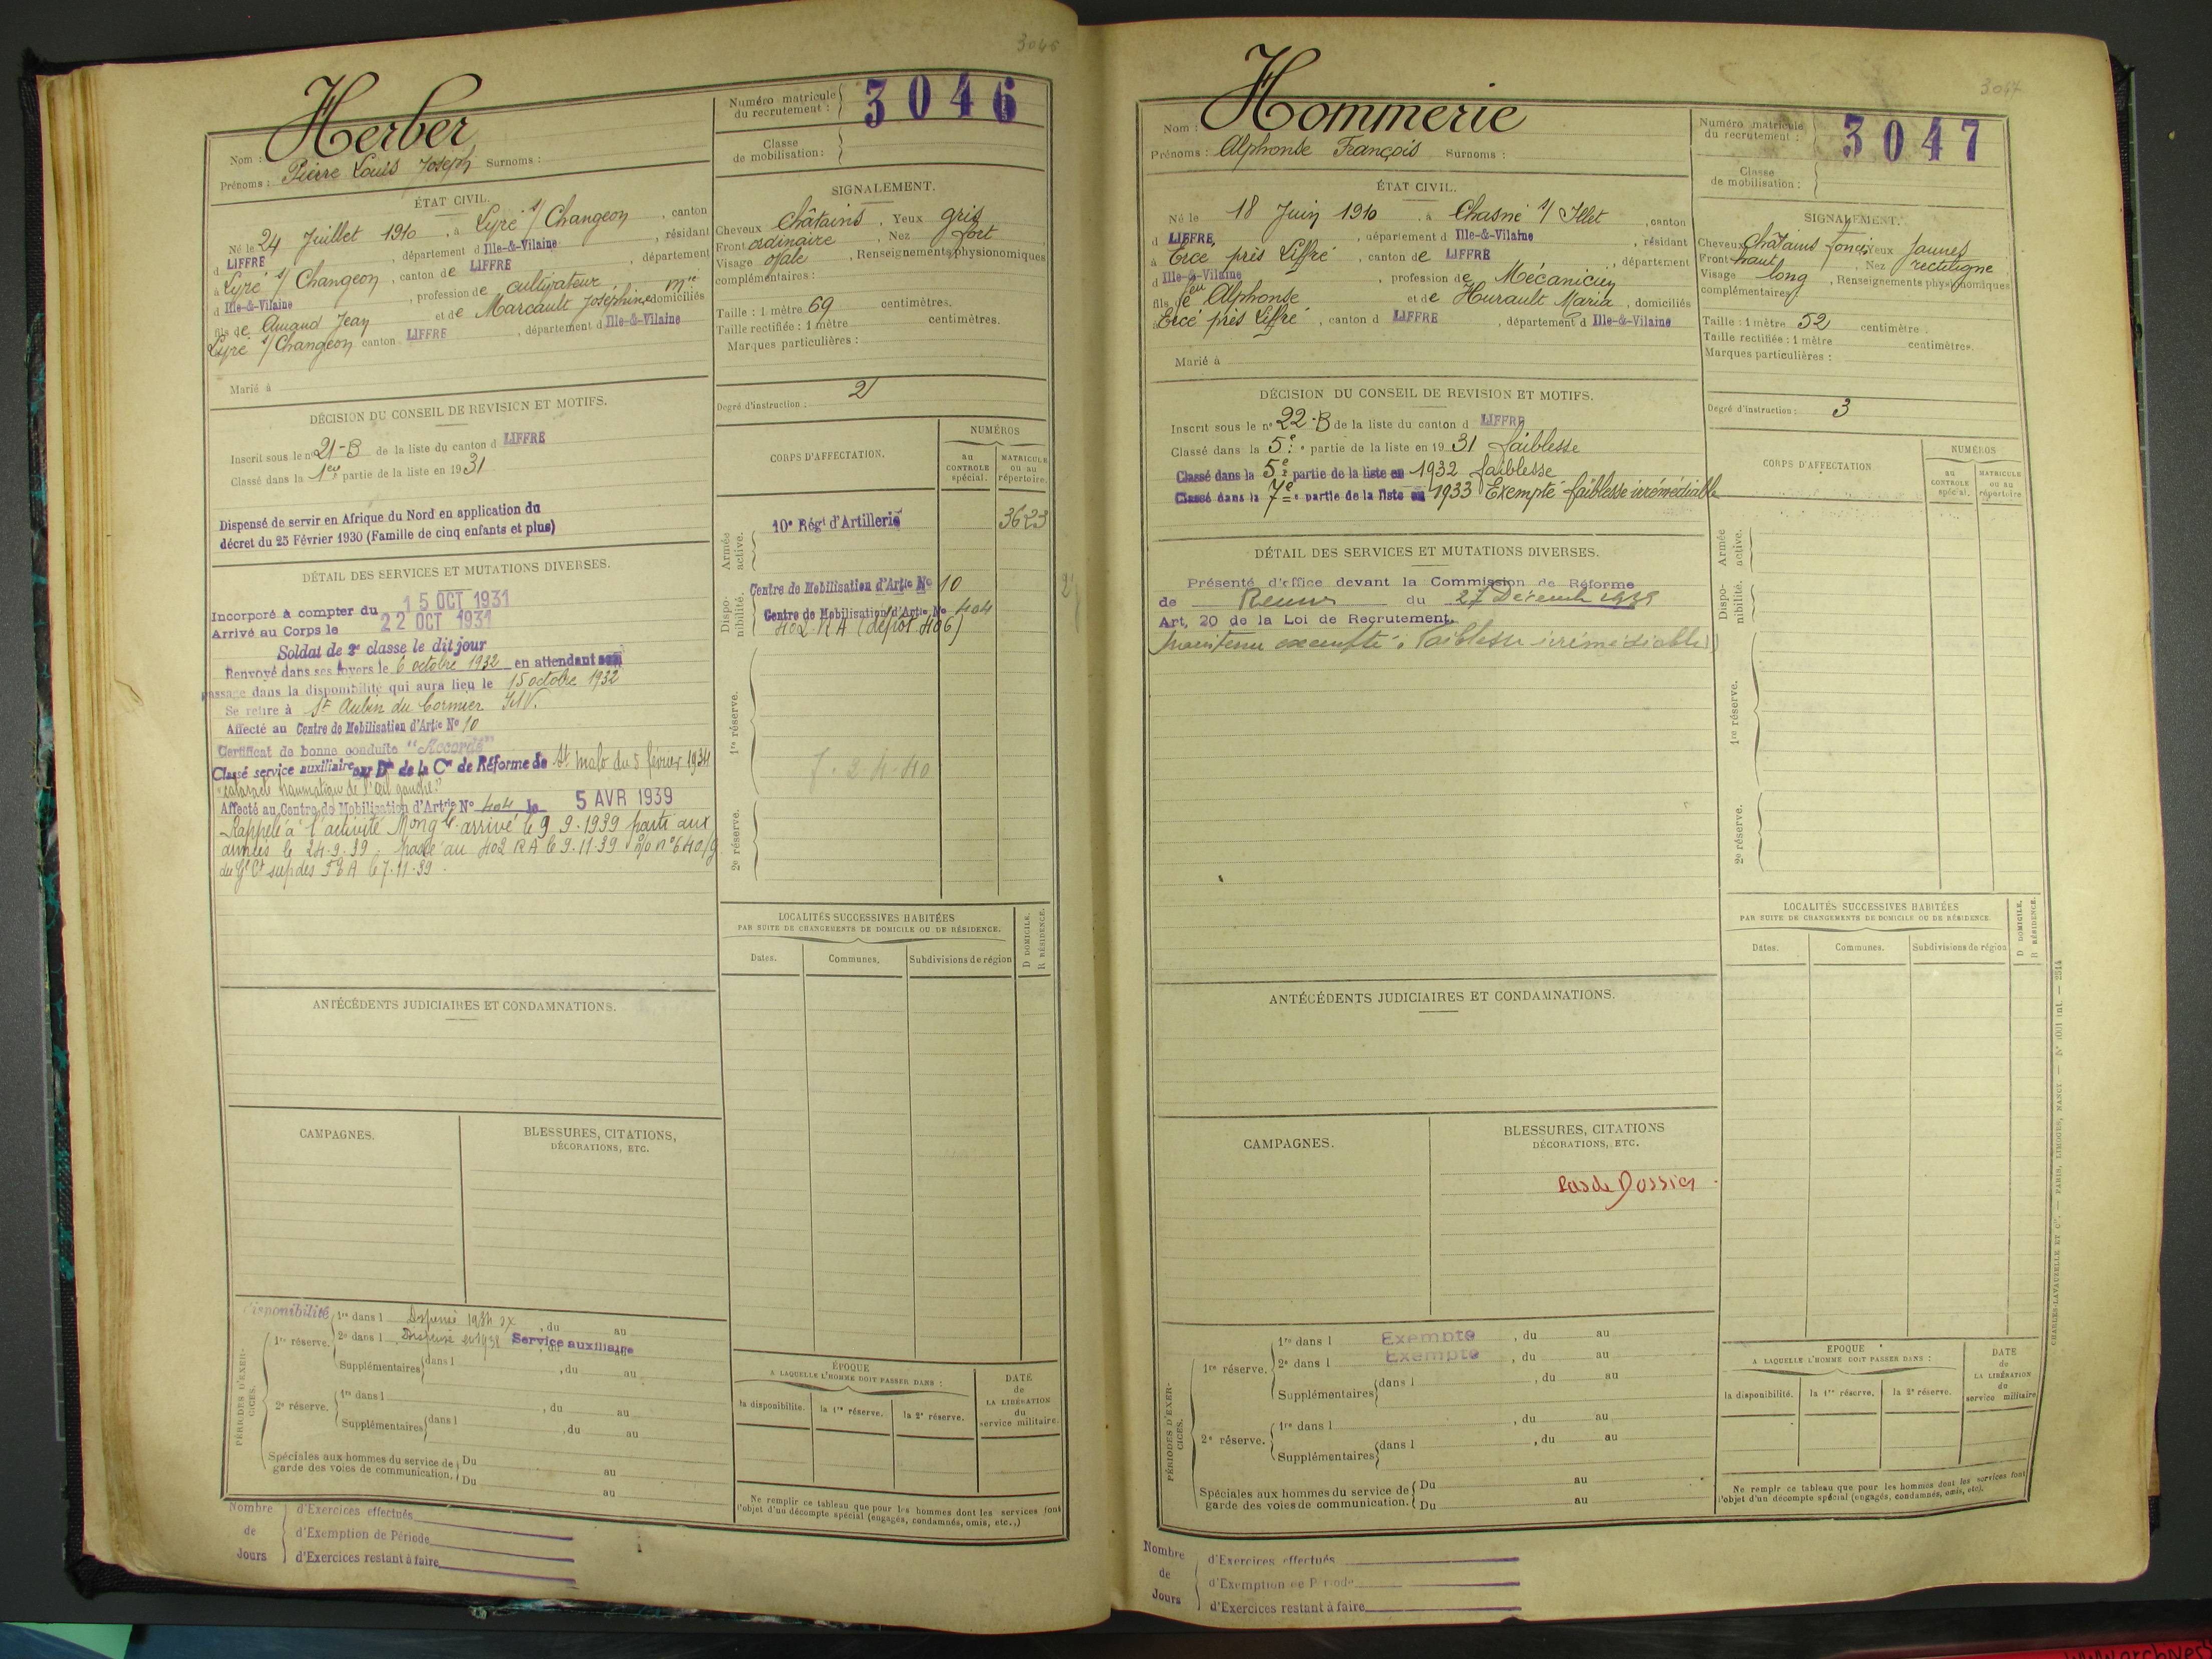 3046
Herber
Nom :
Prénoms : Pierre Louis Joseph Surnoms :
Numéro matricule du recrutement : 3046
Classe de mobilisation :
ÉTAT CIVIL.
Né le 24 Juillet 1910, à Lyré s/ Changeon, canton
d LIFFRE, département d Ille-&-Vilaine, résidant
à Lyré s/ Changeon, canton de LIFFRE, département
d Ille-&-Vilaine, profession de cultivateur
fils de Amand Jean et de Marcault Joséphine, domiciliés
Lyré s/ Changeon canton LIFFRE, département d Ille-&-Vilaine
Marié à
SIGNALEMENT.
Cheveux châtains, Yeux gris
Front ordinaire, Nez fort
Visage ovale, Renseignements physionomiques
complémentaires :
Taille : 1 mètre 69 centimètres.
Taille rectifiée : 1 mètre centimètres.
Marques particulières :
Degré d'instruction : 2
DÉCISION DU CONSEIL DE REVISION ET MOTIFS.
Inscrit sous le n° 21-B de la liste du canton d LIFFRE
Classé dans la 1ere partie de la liste en 1931
Dispensé de servir en Afrique du Nord en application du
décret du 25 Février 1930 (Famille de cinq enfants et plus)
DÉTAIL DES SERVICES ET MUTATIONS DIVERSES.
Incorporé à compter du 15 OCT 1931
Arrivé au Corps le 22 OCT 1931
Soldat de 2e classe le dit jour
Renvoyé dans ses foyers le 6 octobre 1932 en attendant son
passage dans la disponibilité qui aura lieu le 15 octobre 1932
Se retire à St Aubin du Cormier I&V.
Affecté au Centre de Mobilisation d'Artie No 10
Certificat de bonne conduite "Accordé"
Classé service auxiliaire par Don de la Con de Réforme de St Malo du 5 février 1934
"cataracte traumatique de l'œil gauche"
Affecté au Centre de Mobilisation d'Artrie No 404 le 5 AVR 1939
Rappelé à l'activité Mong le arrivé le 9.9.1939 parti aux
armées le 24.9.39. passé au 402 RA le 9.11.39 n° 640/g
du Gl Ct sup des le 7.11.39.
CORPS D'AFFECTATION.
NUMÉROS
au CONTROLE spécial.
MATRICULE ou au répertoire.
Armée active.
10e Régt d'Artillerie 3623
Disponibilité.
Centre de Mobilisation d'Artie No 10
Centre de Mobilisation d'Artie No 404
402 RA (dépôt 406)
1re réserve.
2e réserve.
LOCALITÉS SUCCESSIVES HABITÉES
PAR SUITE DE CHANGEMENTS DE DOMICILE OU DE RÉSIDENCE.
D DOMICILE.
R RÉSIDENCE.
Dates. Communes. Subdivisions de région
ANTÉCÉDENTS JUDICIAIRES ET CONDAMNATIONS.
CAMPAGNES.
BLESSURES, CITATIONS,
DÉCORATIONS, ETC.
PÉRIODES D'EXERCICES.
Disponibilité
1re réserve. 1re dans l Dispensé, du au
2e dans l Dispensé Service auxiliaire, du au
Supplémentaires dans l, du au
2e réserve. 1re dans l, du au
Supplémentaires dans l, du au
Spéciales aux hommes du service de garde des voies de communication. Du au
Du au
ÉPOQUE
A LAQUELLE L'HOMME DOIT PASSER DANS :
la disponibilité. la 1re réserve. la 2e réserve.
DATE de LA LIBÉRATION du service militaire.
Ne remplir ce tableau que pour les hommes dont les services font
l'objet d'un décompte spécial (engagés, condamnés, omis, etc..)
Nombre de Jours
d'Exercices effectués
d'Exemption de Période
d'Exercices restant à faire
3047
Nom : Hommerie
Prénoms : Alphonse François Surnoms :
Numéro matricule du recrutement : 3047
Classe de mobilisation :
ÉTAT CIVIL.
Né le 18 Juin 1910, à Chasné s/ Illet, canton
d LIFFRE, département d Ille-&-Vilaine, résidant
à Ercé près Liffré, canton de LIFFRE, département
d Ille-&-Vilaine, profession de Mécanicien
fils de feu Alphonse et de Hurault Maria, domiciliés
à Ercé près Liffré, canton d LIFFRE, département d Ille-&-Vilaine
Marié à
SIGNALEMENT.
Cheveux châtains foncés Yeux jaunes
Front haut, Nez rectiligne
Visage long, Renseignements physionomiques
complémentaires :
Taille : 1 mètre 52 centimètres.
Taille rectifiée : 1 mètre centimètres.
Marques particulières :
Degré d'instruction : 3
DÉCISION DU CONSEIL DE REVISION ET MOTIFS.
Inscrit sous le n° 22-B de la liste du canton d LIFFRE
Classé dans la 5e partie de la liste en 1931 faiblesse
Classé dans la 5e partie de la liste en 1932 faiblesse
Classé dans la 7e partie de la liste en 1933 Exempté faiblesse irrémédiable
DÉTAIL DES SERVICES ET MUTATIONS DIVERSES.
Présenté d'office devant la Commission de Réforme
de Rennes du 27 Décemb 1939
Art, 20 de la Loi de Recrutement.
Maintenu exempté : faiblesse irrémédiable
CORPS D'AFFECTATION
NUMÉROS
au CONTROLE spécial.
MATRICULE ou au répertoire
Armée active.
Disponibilité.
1re réserve.
2e réserve.
LOCALITÉS SUCCESSIVES HABITÉES
PAR SUITE DE CHANGEMENTS DE DOMICILE OU DE RÉSIDENCE.
D DOMICILE.
R RÉSIDENCE.
Dates. Communes. Subdivisions de région
ANTÉCÉDENTS JUDICIAIRES ET CONDAMNATIONS.
CAMPAGNES.
BLESSURES, CITATIONS
DÉCORATIONS, ETC.
Pas de Dossier.
PÉRIODES D'EXERCICES.
1re réserve. 1re dans l Exempté, du au
2e dans l Exempté, du au
Supplémentaires dans l, du au
2e réserve. 1re dans l, du au
Supplémentaires dans l, du au
Spéciales aux hommes du service de garde des voies de communication. Du au
Du au
EPOQUE
A LAQUELLE L'HOMME DOIT PASSER DANS :
la disponibilité. la 1re réserve. la 2e réserve.
DATE de LA LIBÉRATION du service militaire
Ne remplir ce tableau que pour les hommes dont les services font
l'objet d'un décompte spécial (engagés, condamnés, omis, etc).
Nombre de Jours
d'Exercices effectués
d'Exemption de Période
d'Exercices restant à faire
CHARLES-LAVAUZELLE ET Cie. — PARIS, LIMOGES, NANCY